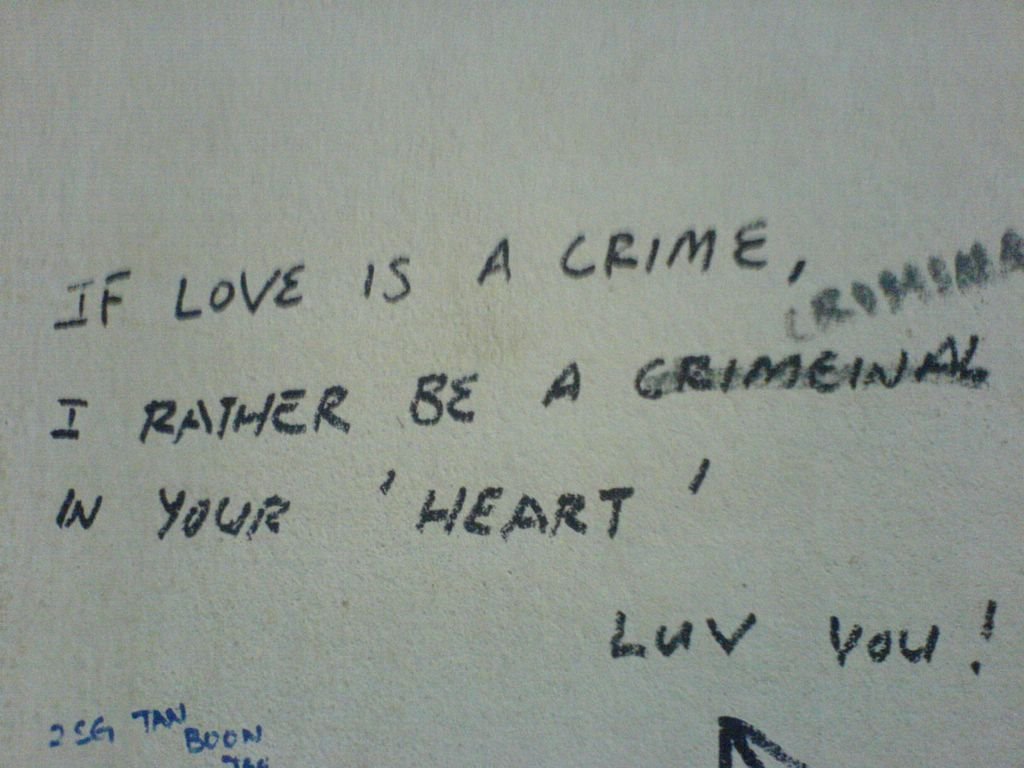 IF LOVE IS A CRIME,
I RATHER BE A CRIMEINAL
IN YOUR 'HEART'
LUV YOU!
2SG TAN
BOON